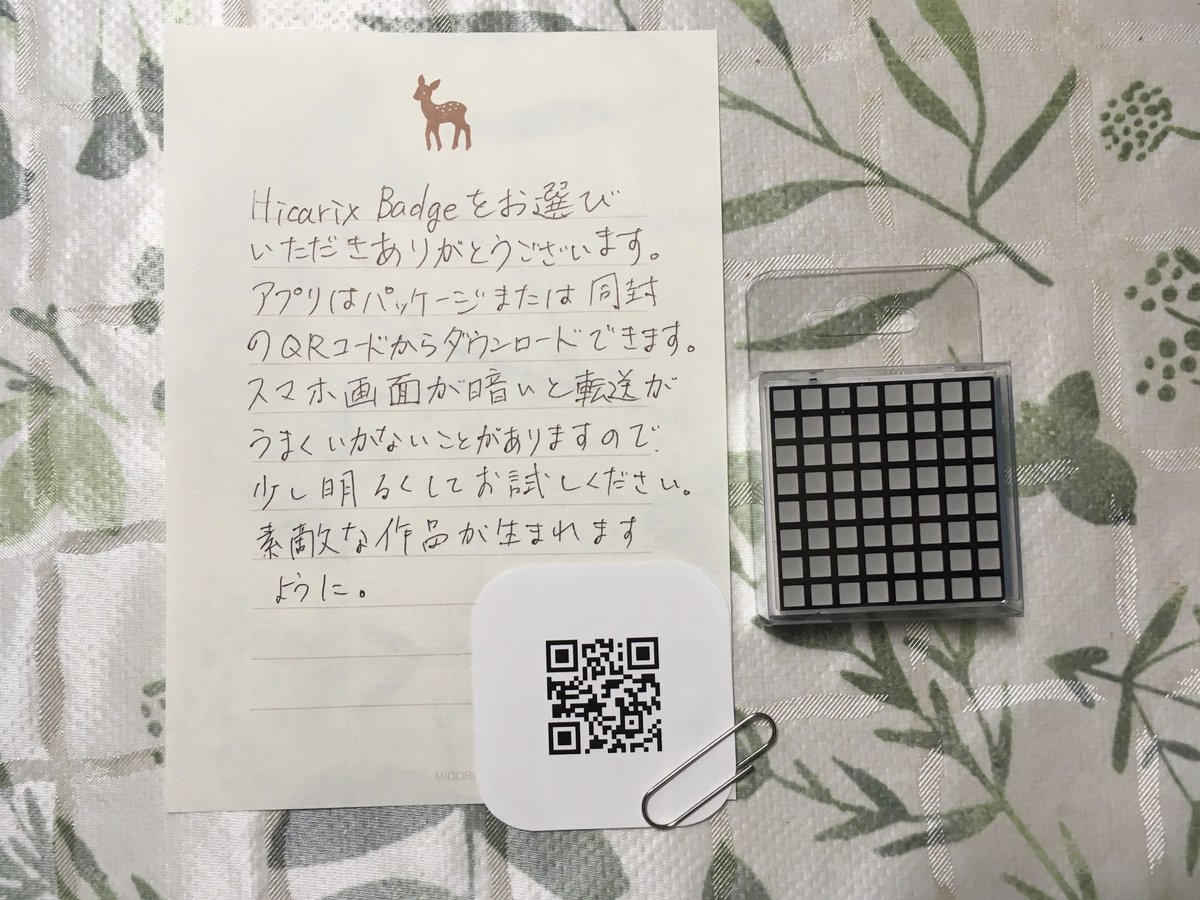 Hicarix Badgeをお選び
いただきありがとうございます。
アプリはパッケージまたは同封
のQRコードからダウンロードできます。
スマホ画面が暗いと転送が
うまくいかないことがありますので、
少し明るくしてお試しください。
素敵な作品が生まれます
ように。
MIDORI